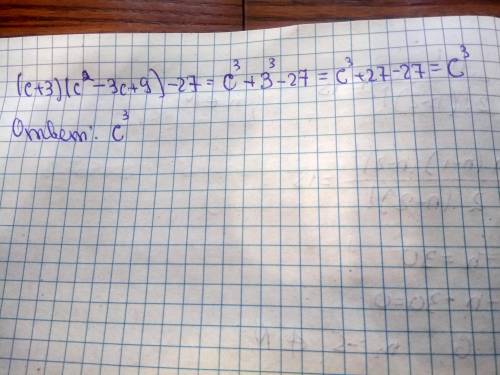 (c+3)(c²-3c+9)-27=c³+3³-27=c³+27-27=c³
Ответ: c³